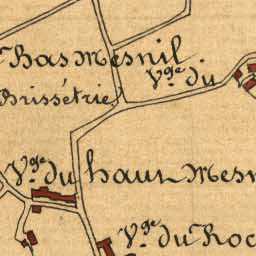 Bas Mesnil
Vge du
Brissétrie
Vge du haut Mesn
Vge du Roc